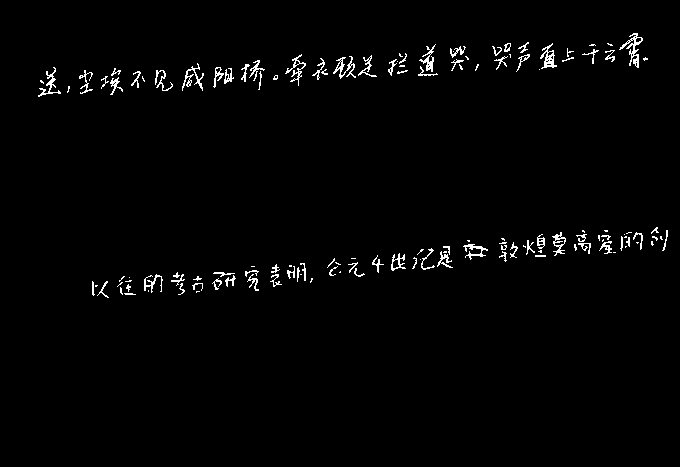 送,尘埃不见咸阳桥。牵衣顿足拦道哭,哭声直上干云霄。
以往的考古研究表明,公元4世纪是敦煌莫高窟的创